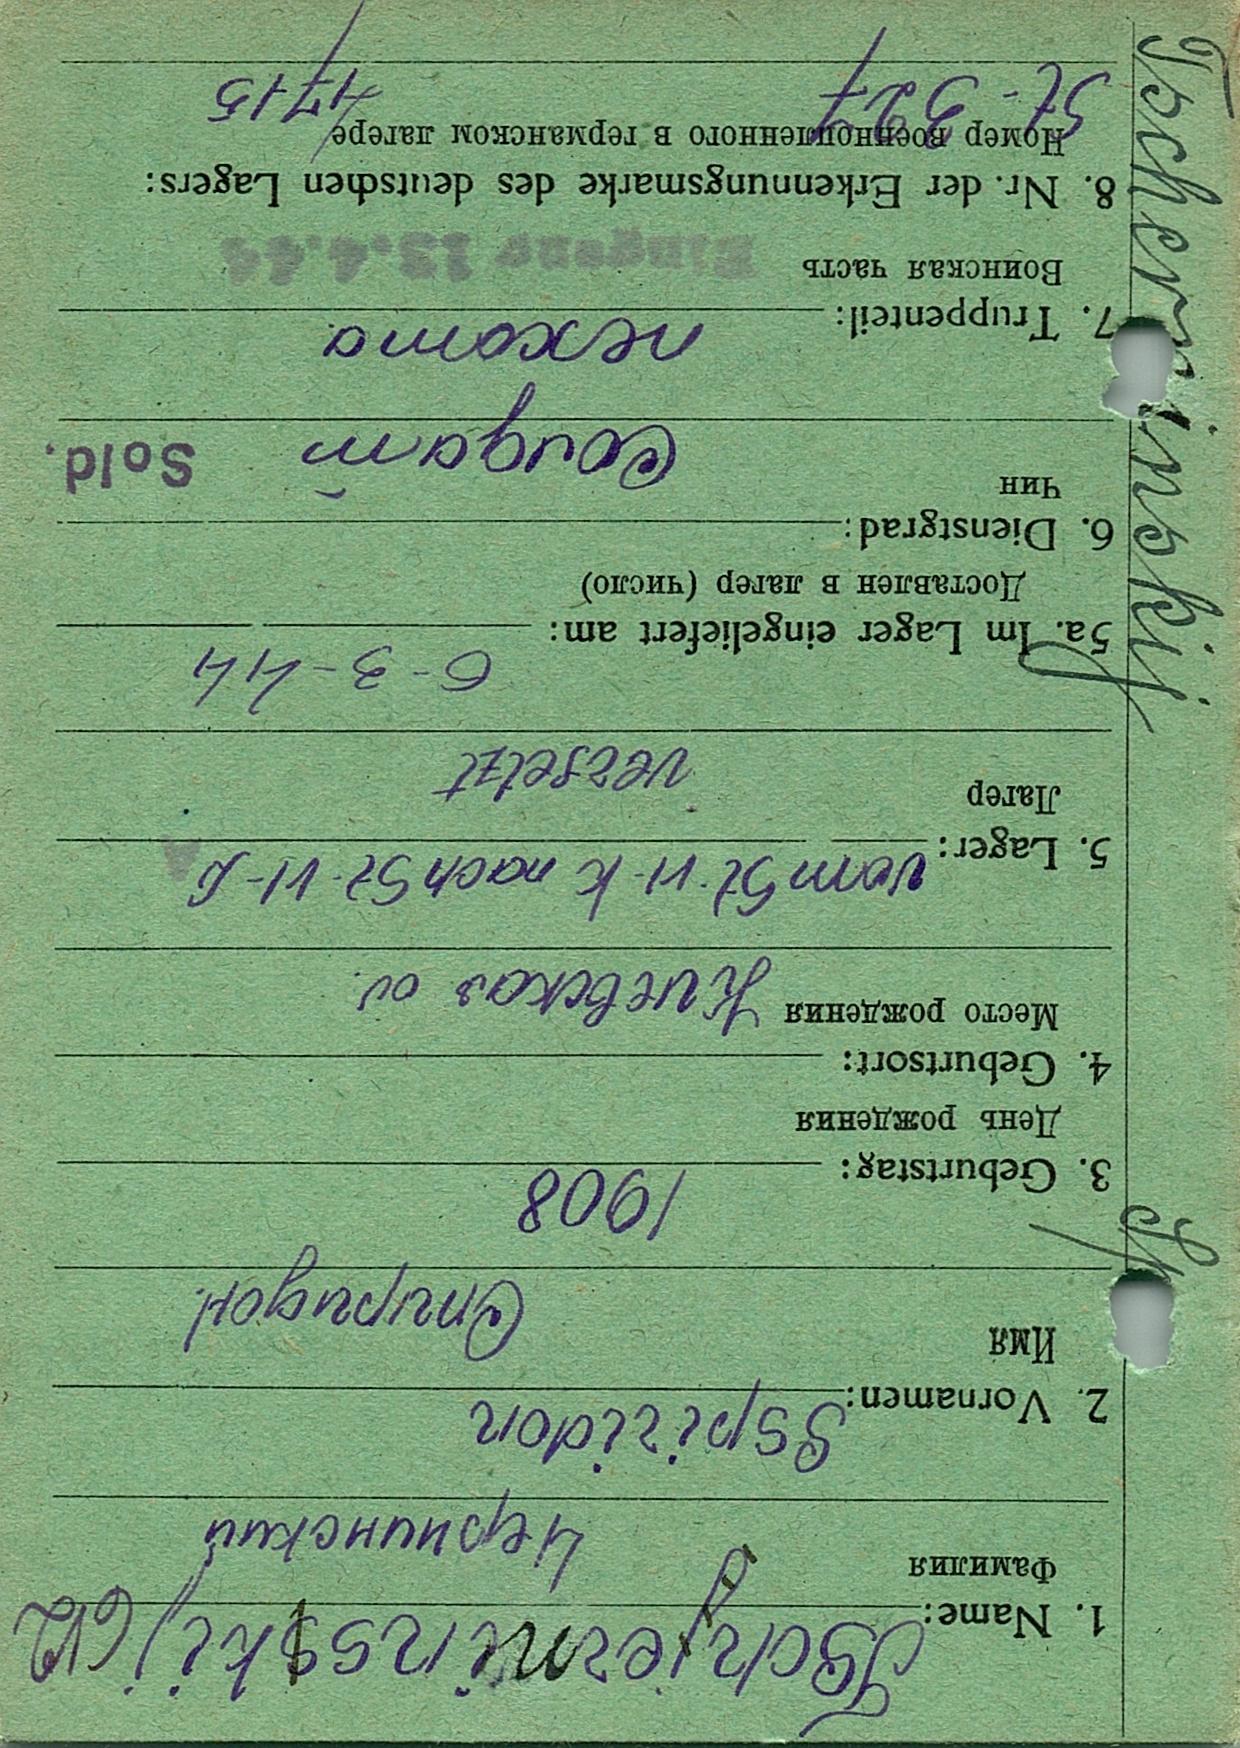 Tscherninskij Sp
1. Name: Tschjerninsskij 612
Фамилия Чернинский
2. Vornamen: Sspiridon
Имя Спиридон.
3. Geburtstag: 1908
День рождения
4. Geburtsort:
Место рождения Киевская ол.
5. Lager: vom St. VI-K nach St. VI-A
Лагер versetzt
5a. Im Lager eingeliefert am: 6-3-44
Доставлен в лагер (число)
6. Dienstgrad:
Чин Солдат Sold.
7. Truppenteil: пехота
Воинская часть Eingang 13.4.44
8. Nr. der Erkennungsmarke des deutschen Lagers:
Номер военнопленного в германском лагере
St-327/ 4715